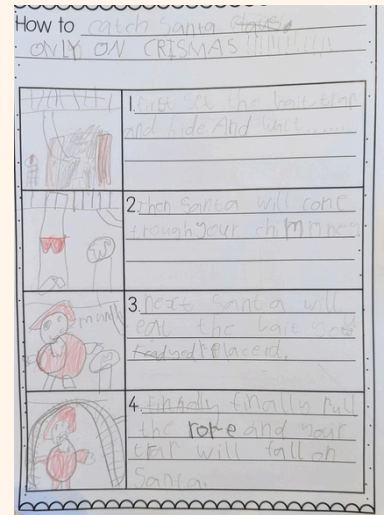 How to catch Santa
ONLY ON CRISMAS !!!!!!!!!!!
1. first set the bait trap
and hide. And wait.......
2. then Santa will come
through your chimnney
3. next Santa will
eat the bait you
replaced.
4. finally pull
the rope and your
trap will fall on
Santa.
munch